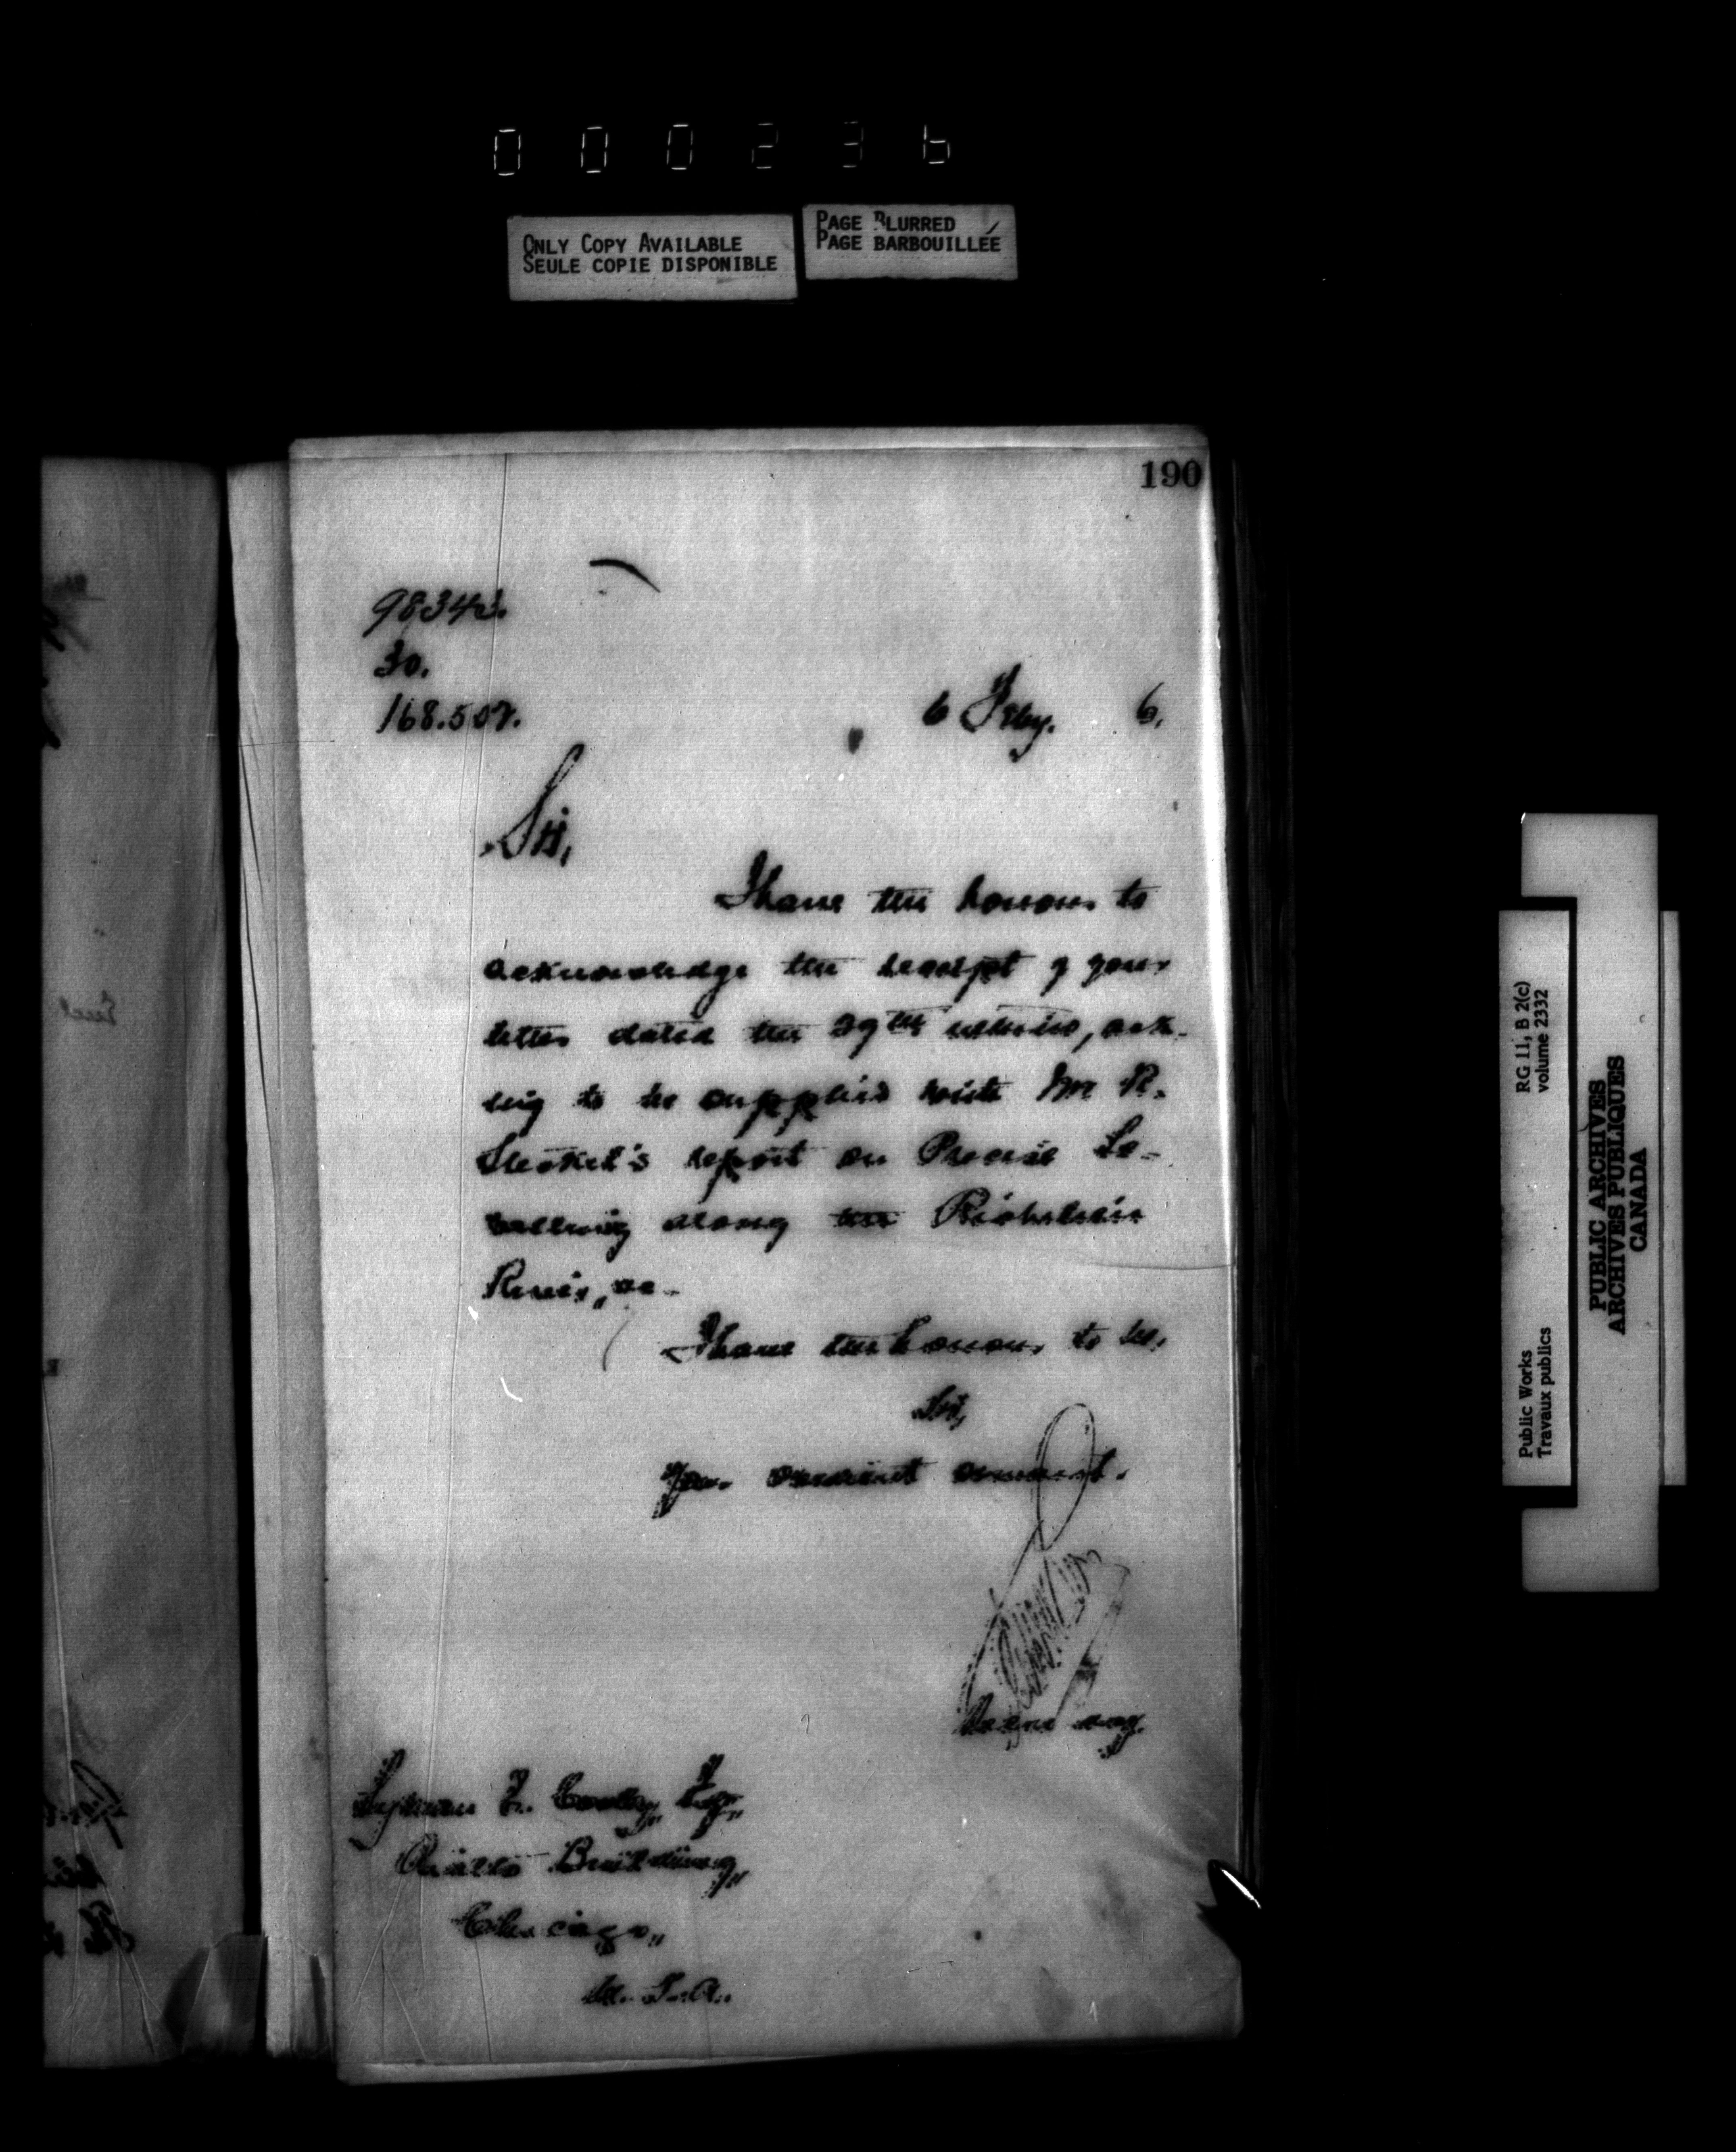 000236
ONLY COPY AVAILABLE
SEULE COPIE DISPONIBLE
PAGE BLURRED
PAGE BARBOUILLÉE
190
30.
168.507.
6 Feby. 6.
Sir,
I have the honour to
acknowledge the receipt of your
letter dated the 29th ultimo, ask-
ing to be supplied with Mr R.
Steckel's report on Precise Le-
velling along the Richelieu
River, &c-
I have the honour to be,
Sir,
Your obedient servant.
Lyman E. Cooley, Esq,,
Rialto Building,,
Chicago,,
U. S. A.
RG 11, B 2(c)
volume 2332
Public Works
Travaux publics
PUBLIC ARCHIVES
ARCHIVES PUBLIQUES
CANADA